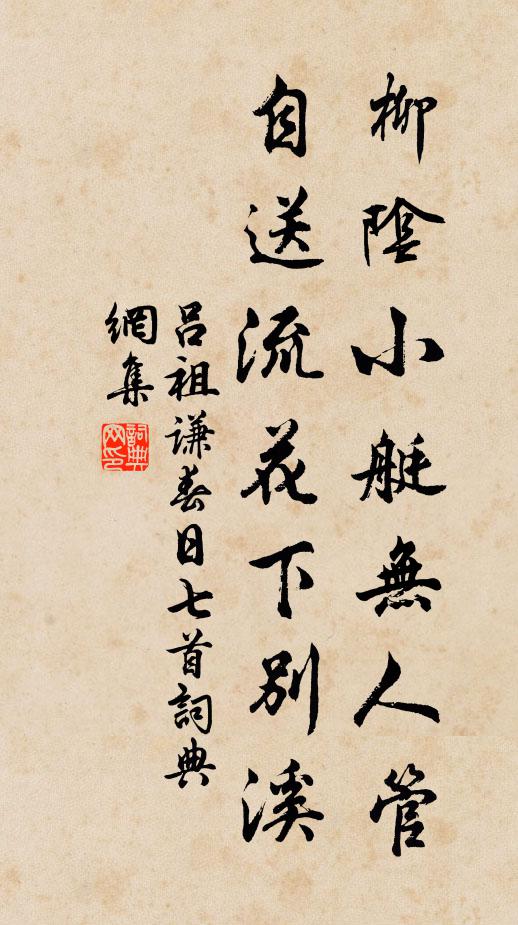 柳陰小艇無人管
自送流花下別溪
呂祖謙春日七首詞典
網集
詞典
网印